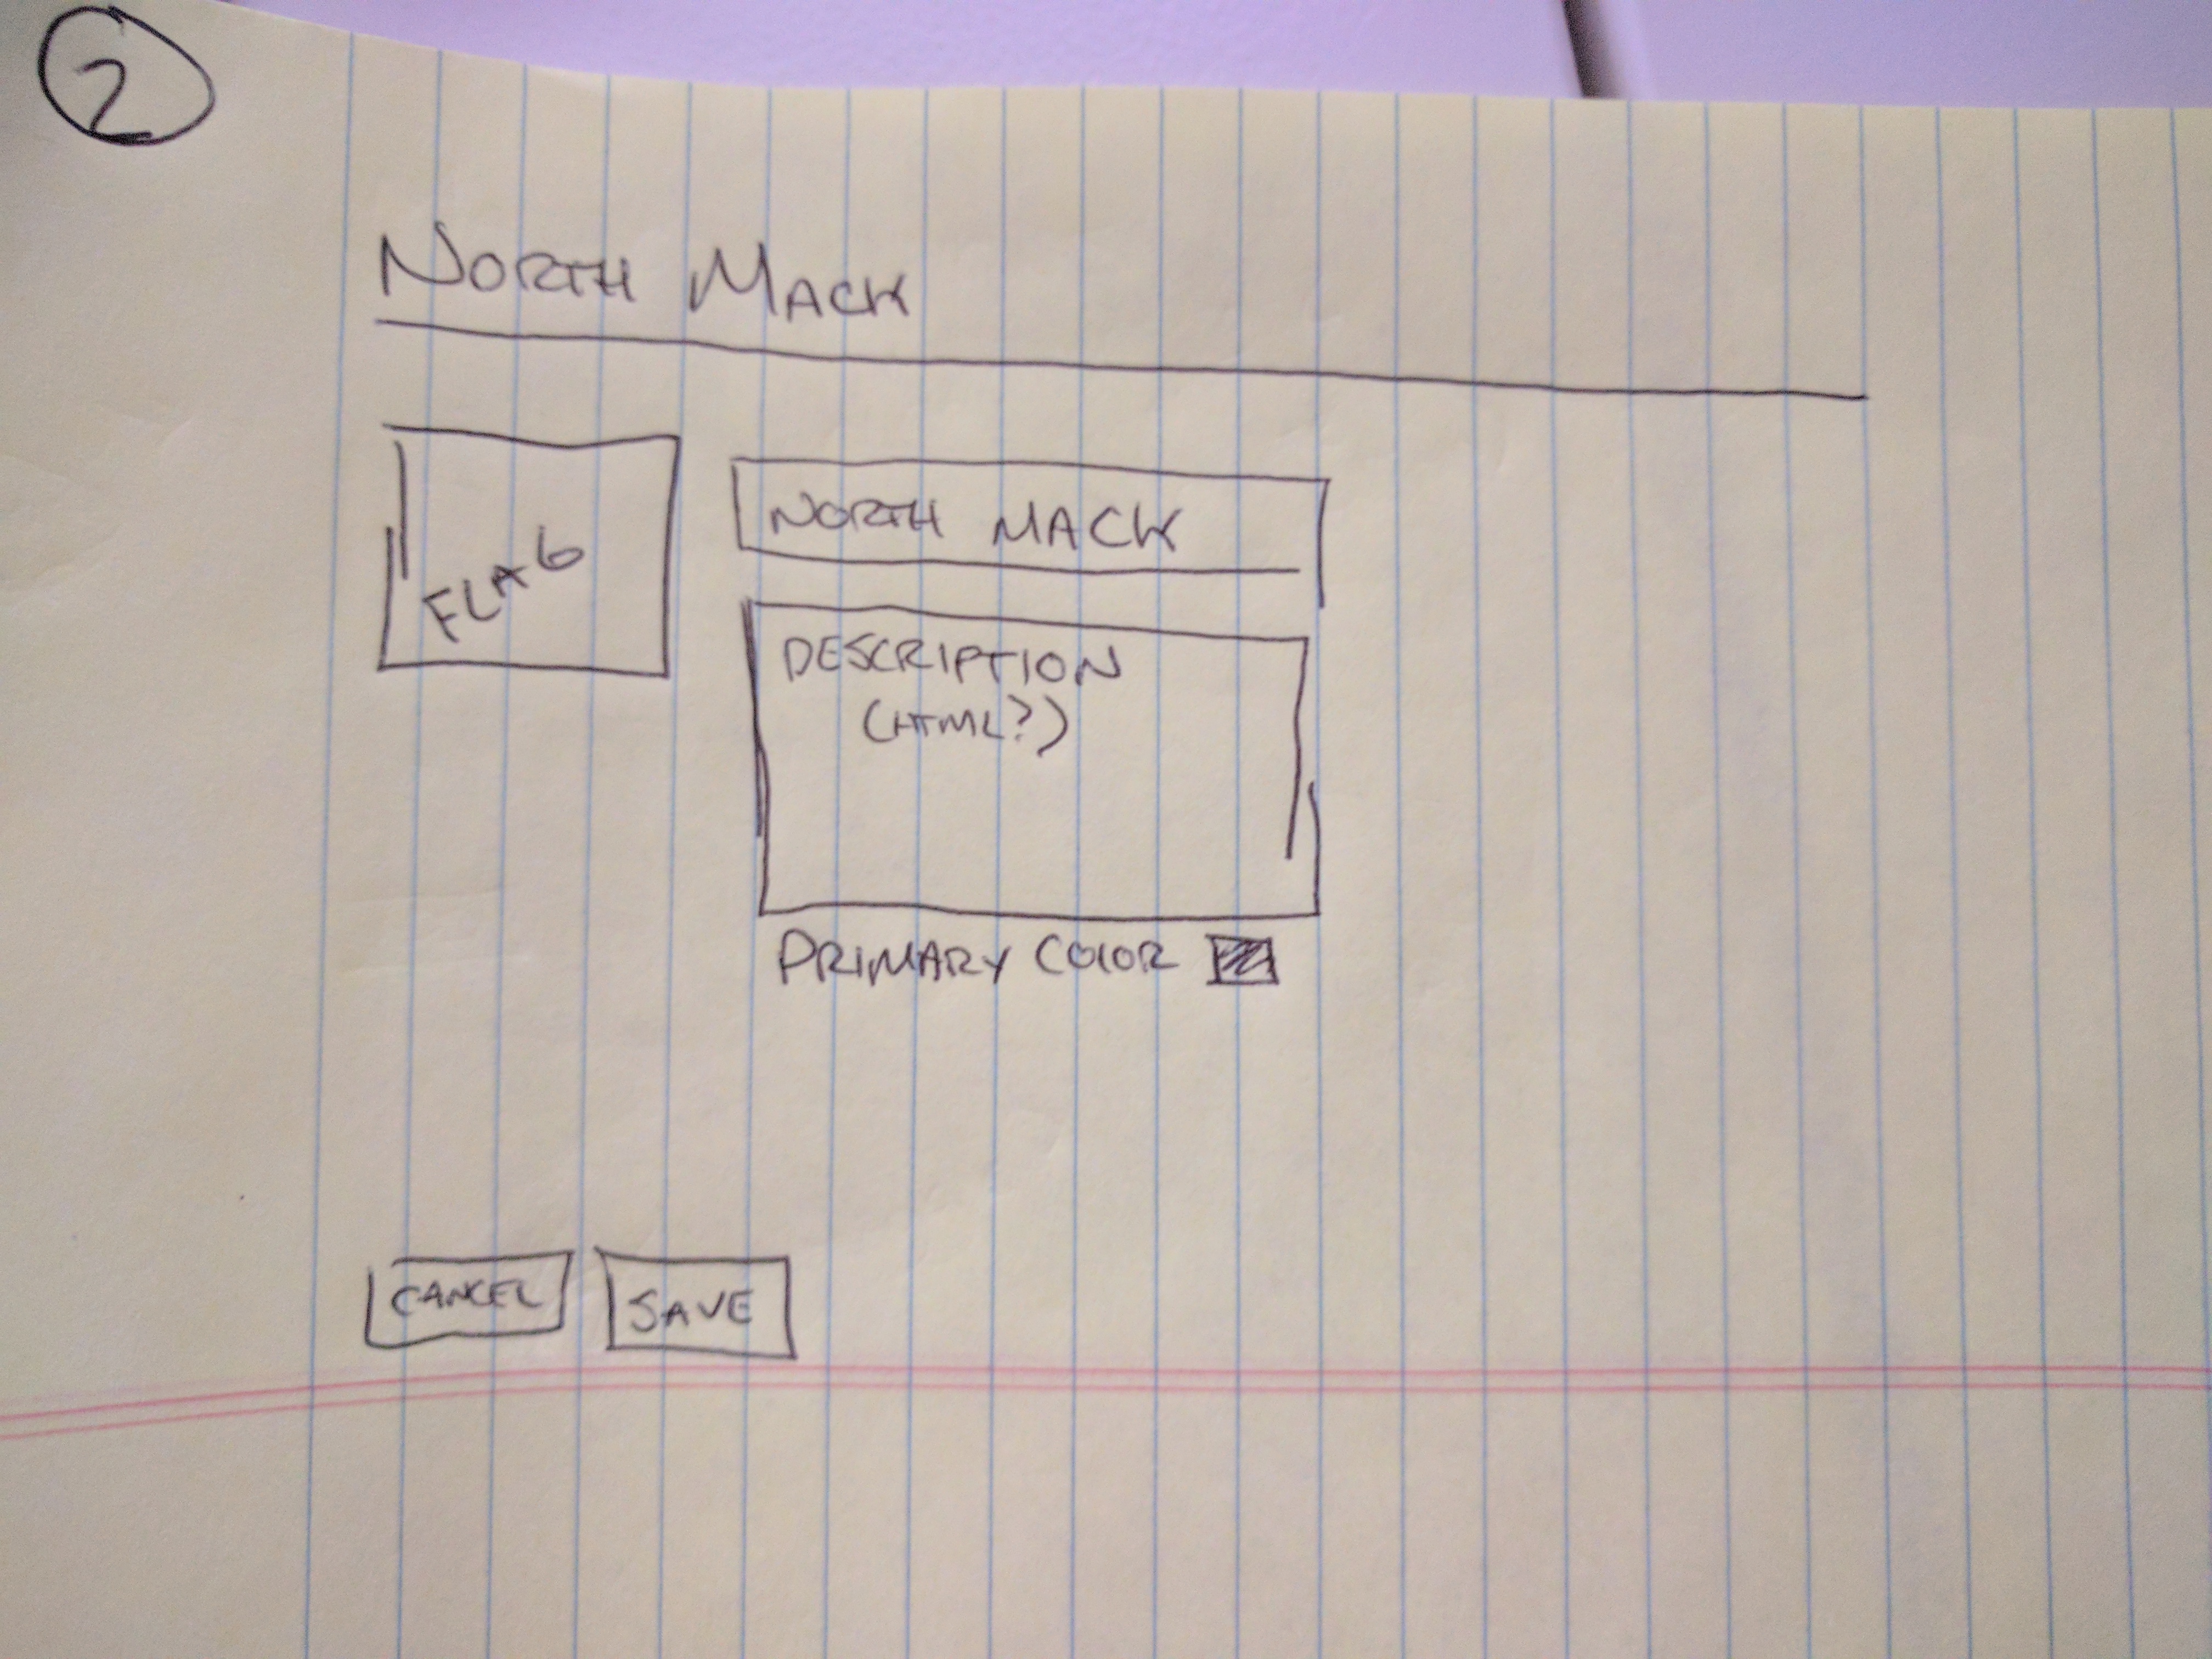 2
NORTH MACK
FLAG
NORTH MACK
DESCRIPTION
(HTML?)
PRIMARY COLOR
CANCEL
SAVE